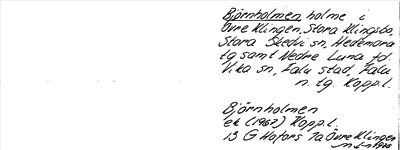 Björnholmen holme i
Övre Klingen, Stora Klingsbo,
Stora Skedvi sn, Hedemora
tg samt Nedre Luna fd.
Vika sn, Falu stad, Falu
n. tg. Kopp.l.
Björnholmen
ek (1962) Kopp.l.
13 G Hofors 7a Övre Klingen